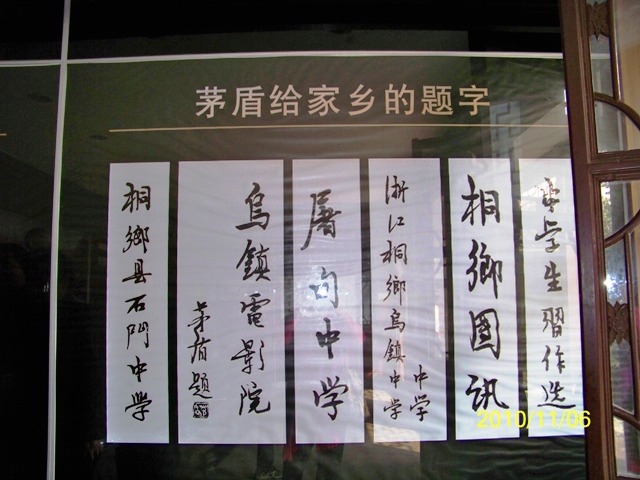 茅盾给家乡的题字
中学生習作选
桐鄉訊
浙江桐鄉烏鎮中学
中学
屠甸中学
烏鎮電影院
茅盾题
桐鄉县石門中学
2010/11/06